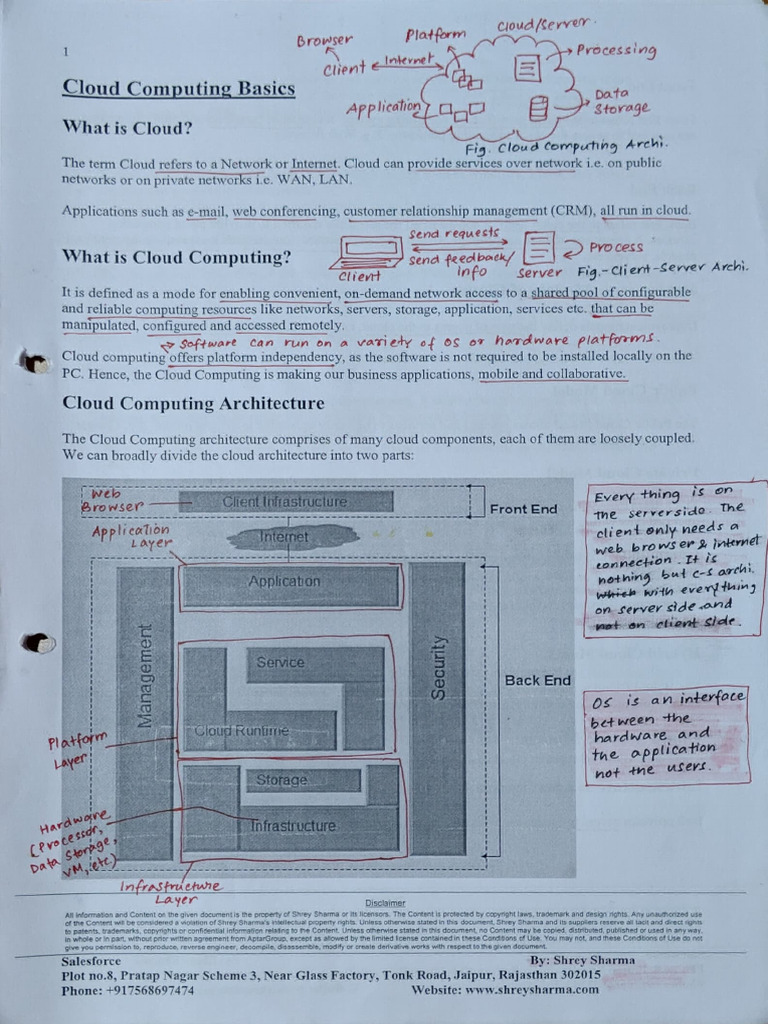 1
Cloud Computing Basics
Browser
Client
Internet
Platform
Cloud/Server.
Processing
Application
Data
Storage
Fig. Cloud Computing Archi.
What is Cloud?
The term Cloud refers to a Network or Internet. Cloud can provide services over network i.e. on public
networks or on private networks i.e. WAN, LAN.
Applications such as e-mail, web conferencing, customer relationship management (CRM), all run in cloud.
What is Cloud Computing?
Client
send requests
send feedback/
info
Server
Process
Fig.-Client-Server Archi.
It is defined as a mode for enabling convenient, on-demand network access to a shared pool of configurable
and reliable computing resources like networks, servers, storage, application, services etc. that can be
manipulated, configured and accessed remotely.
Software can run on a variety of OS or hardware platforms.
Cloud computing offers platform independency, as the software is not required to be installed locally on the
PC. Hence, the Cloud Computing is making our business applications, mobile and collaborative.
Cloud Computing Architecture
The Cloud Computing architecture comprises of many cloud components, each of them are loosely coupled.
We can broadly divide the cloud architecture into two parts:
Web
Browser
Client Infrastructure
Front End
Application
Layer
Internet
Application
Management
Security
Service
Cloud Runtime
Back End
Platform
Layer
Storage
Infrastructure
Hardware
(Processor,
Data Storage,
VM, etc)
Infrastructure
Layer
Every thing is on
the serverside. The
client only needs a
web browser & internet
connection. It is
nothing but c-s archi.
which with everything
on server side and
not on client side.
OS is an interface
between the
hardware and
the application
not the users.
Disclaimer
All information and Content on the given document is the property of Shrey Sharma or its licensors. The Content is protected by copyright laws, trademark and design rights. Any unauthorized use
of the Content will be considered a violation of Shrey Sharma's intellectual property rights. Unless otherwise stated in this document, Shrey Sharma and its suppliers reserve all tacit and direct rights
to patents, trademarks, copyrights or confidential information relating to the Content. Unless otherwise stated in this document, no Content may be copied, distributed, published or used in any way,
in whole or in part, without prior written agreement from AptarGroup, except as allowed by the limited license contained in these Conditions of Use. You may not, and these Conditions of Use do not
give you permission to, reproduce, reverse engineer, decompile, disassemble, modify or create derivative works with respect to the given document.
Salesforce
By: Shrey Sharma
Plot no.8, Pratap Nagar Scheme 3, Near Glass Factory, Tonk Road, Jaipur, Rajasthan 302015
Phone: +917568697474
Website: www.shreysharma.com